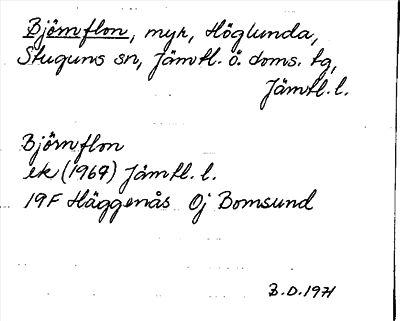 Björnflon, myr, Höglunda,
Stuguns sn, Jämtl. ö. doms. tg,
Jämtl. l.
Björnflon
ek (1969) Jämtl. l.
19F Häggenås Oj Bomsund
B.D.1971